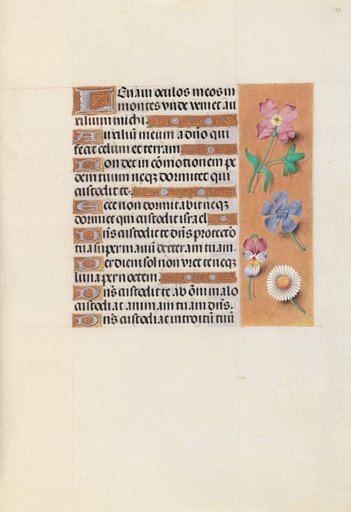 Leuaui oculos meos in
montes vnde veniet au
xilium michi.
Auxiliū meum a dño qui
fecit celum et terram
Non det in cōmotionem pe
dem tuum neqz dormitet qui
custodit te.
Ecce non dormitabit neqz
dormiet qui custodit israel
Dñs custodit te dñs protectio
tua super manū dexteram tuam.
Per diem sol non vret te neqz
luna per noctem.
Dñs custodit te ab omni malo
custodiat animam tuam dñs.
Dñs custodiat introitū tuū